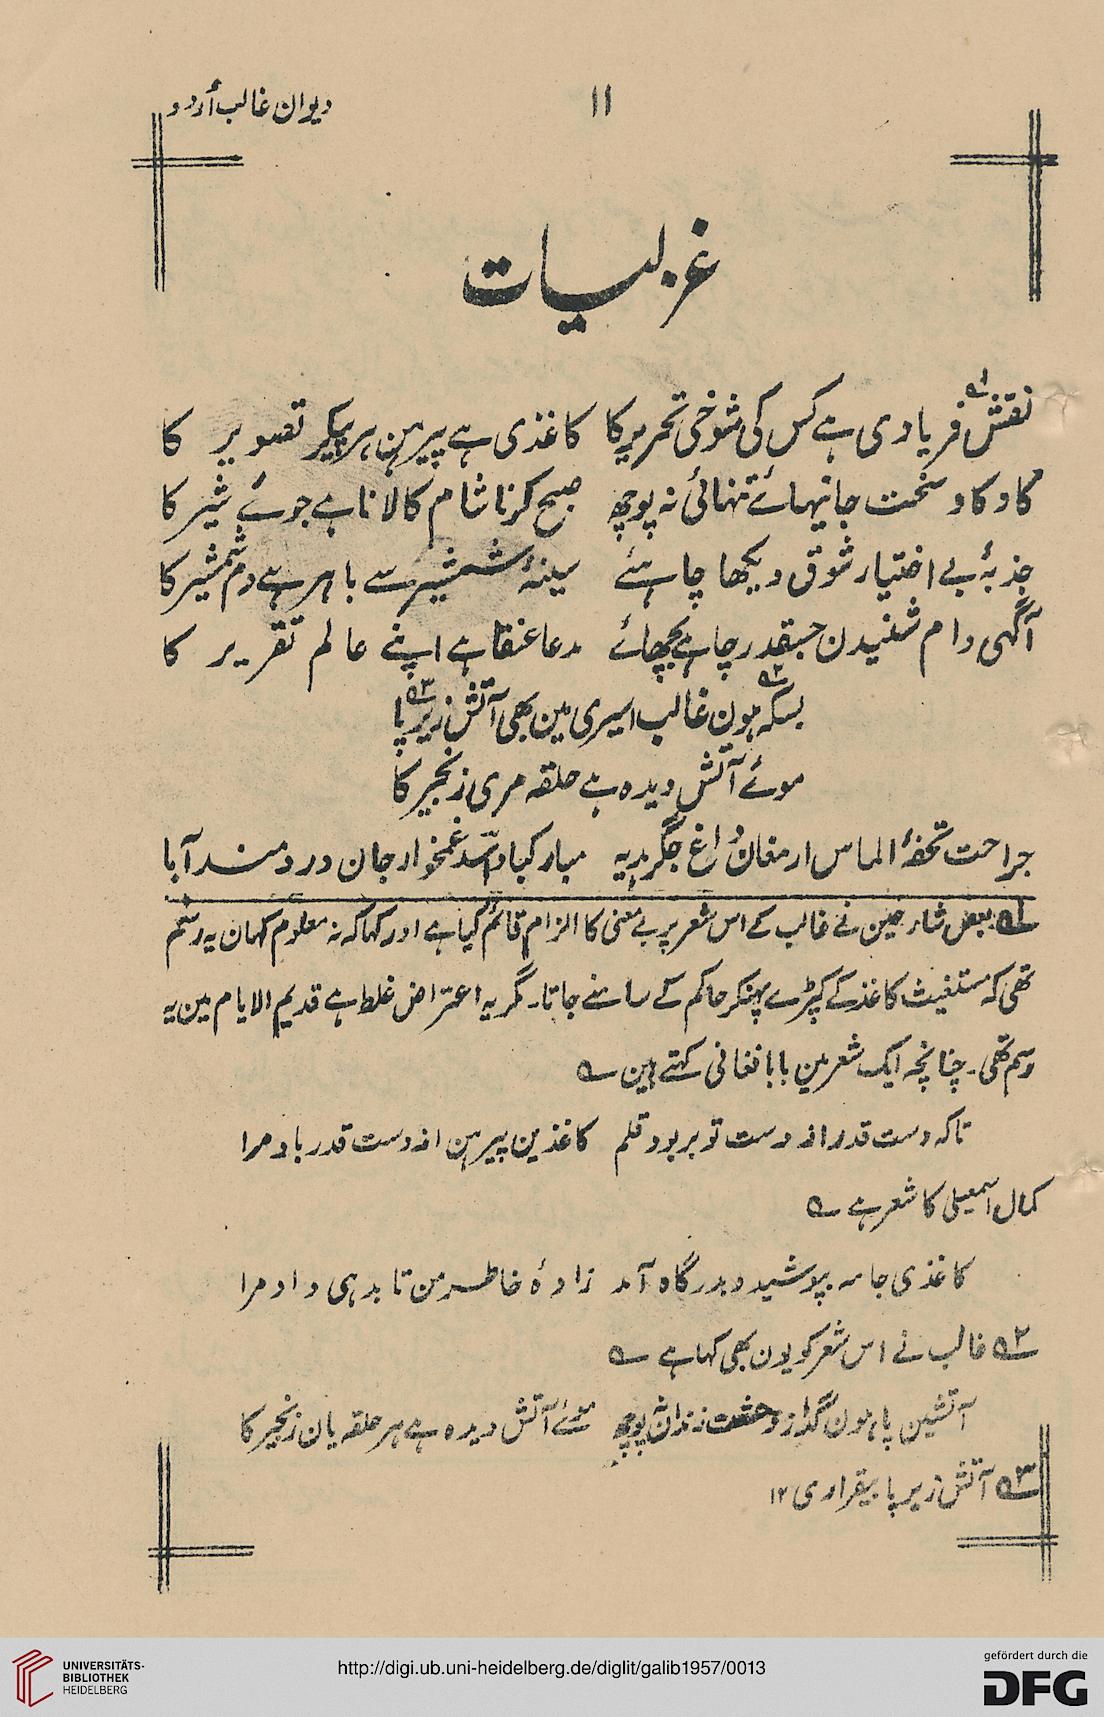 ۱۱
دیوان غالب اُردو
غزلیات
نقش۱؎ فریادی ہے کس کی شوخیِ تحریر کا    کاغذی ہے پیرہن ہر پیکرِ تصویر کا
کاو کاوِ سخت جانیہائے تنہائی نہ پوچھ    صبح کرنا شام کا لانا ہے جوئے شیر کا
جذبۂ بے اختیار شوق دیکھا چاہئے    سینۂ شمشیر سے باہر ہے دم شمشیر کا
آگہی دام شنیدن جسقدر چاہے بچھائے    مدعا عنقا ہے اپنے عالم تقریر کا
بسکہ۲؎ ہون غالب اسیری مین بھی آتش زیر پا۳؎
موئے آتش دیدہ ہے حلقہ مری زنجیر کا
جراحت تحفۂ الماس ارمغان داغ جگر ہدیہ    مبارکباد اسدؔ غمخوار جان دردمند آیا
۱؎ بعض شارحین نے غالب کے اس شعر پر بے معنی کا الزام قائم کیا ہے اور کہا کہ نہ معلوم کہان یہ رسم
تھی کہ مستغیث کاغذ کے کپڑے پہنکر حاکم کے سامنے جاتا۔ مگر یہ اعتراض غلط ہے قدیم الایام مین یہ
رسم تھی۔ چنانچہ ایک شعر مین بابا فغانی کہتے ہین ؎
تاکہ دست قدر از دست تو بر بود قلم    کاغذین پیرہن از دست قدر باد مرا
کمال اسمعیل کا شعر ہے ؎
کاغذی جامہ بپوشید و بدرگاہ آمد    زادۂ خاطر من تا بدہی داد مرا
۲؎ غالب نے اس شعر کو یون بھی کہا ہے ؎
آتشین پا ہون گداز وحشت زندان نہ پوچھ    موئے آتش دیدہ ہے ہر حلقہ یان زنجیر کا
۳؎ آتش زیر پا بیقراری ۱۲
UNIVERSITÄTS-
BIBLIOTHEK
HEIDELBERG
http://digi.ub.uni-heidelberg.de/diglit/galib1957/0013
gefördert durch die
DFG